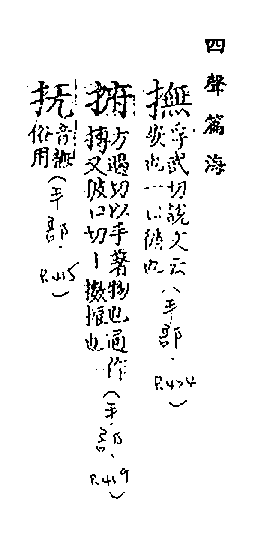 四聲篇海
撫孚武切說文云
安也一曰循也(手部.
P.424)
㨍方遇切以手著物也通作
摶又彼口切丨擻振也(手部.
P.429)
抚音撫
俗用(手部.
P.415)